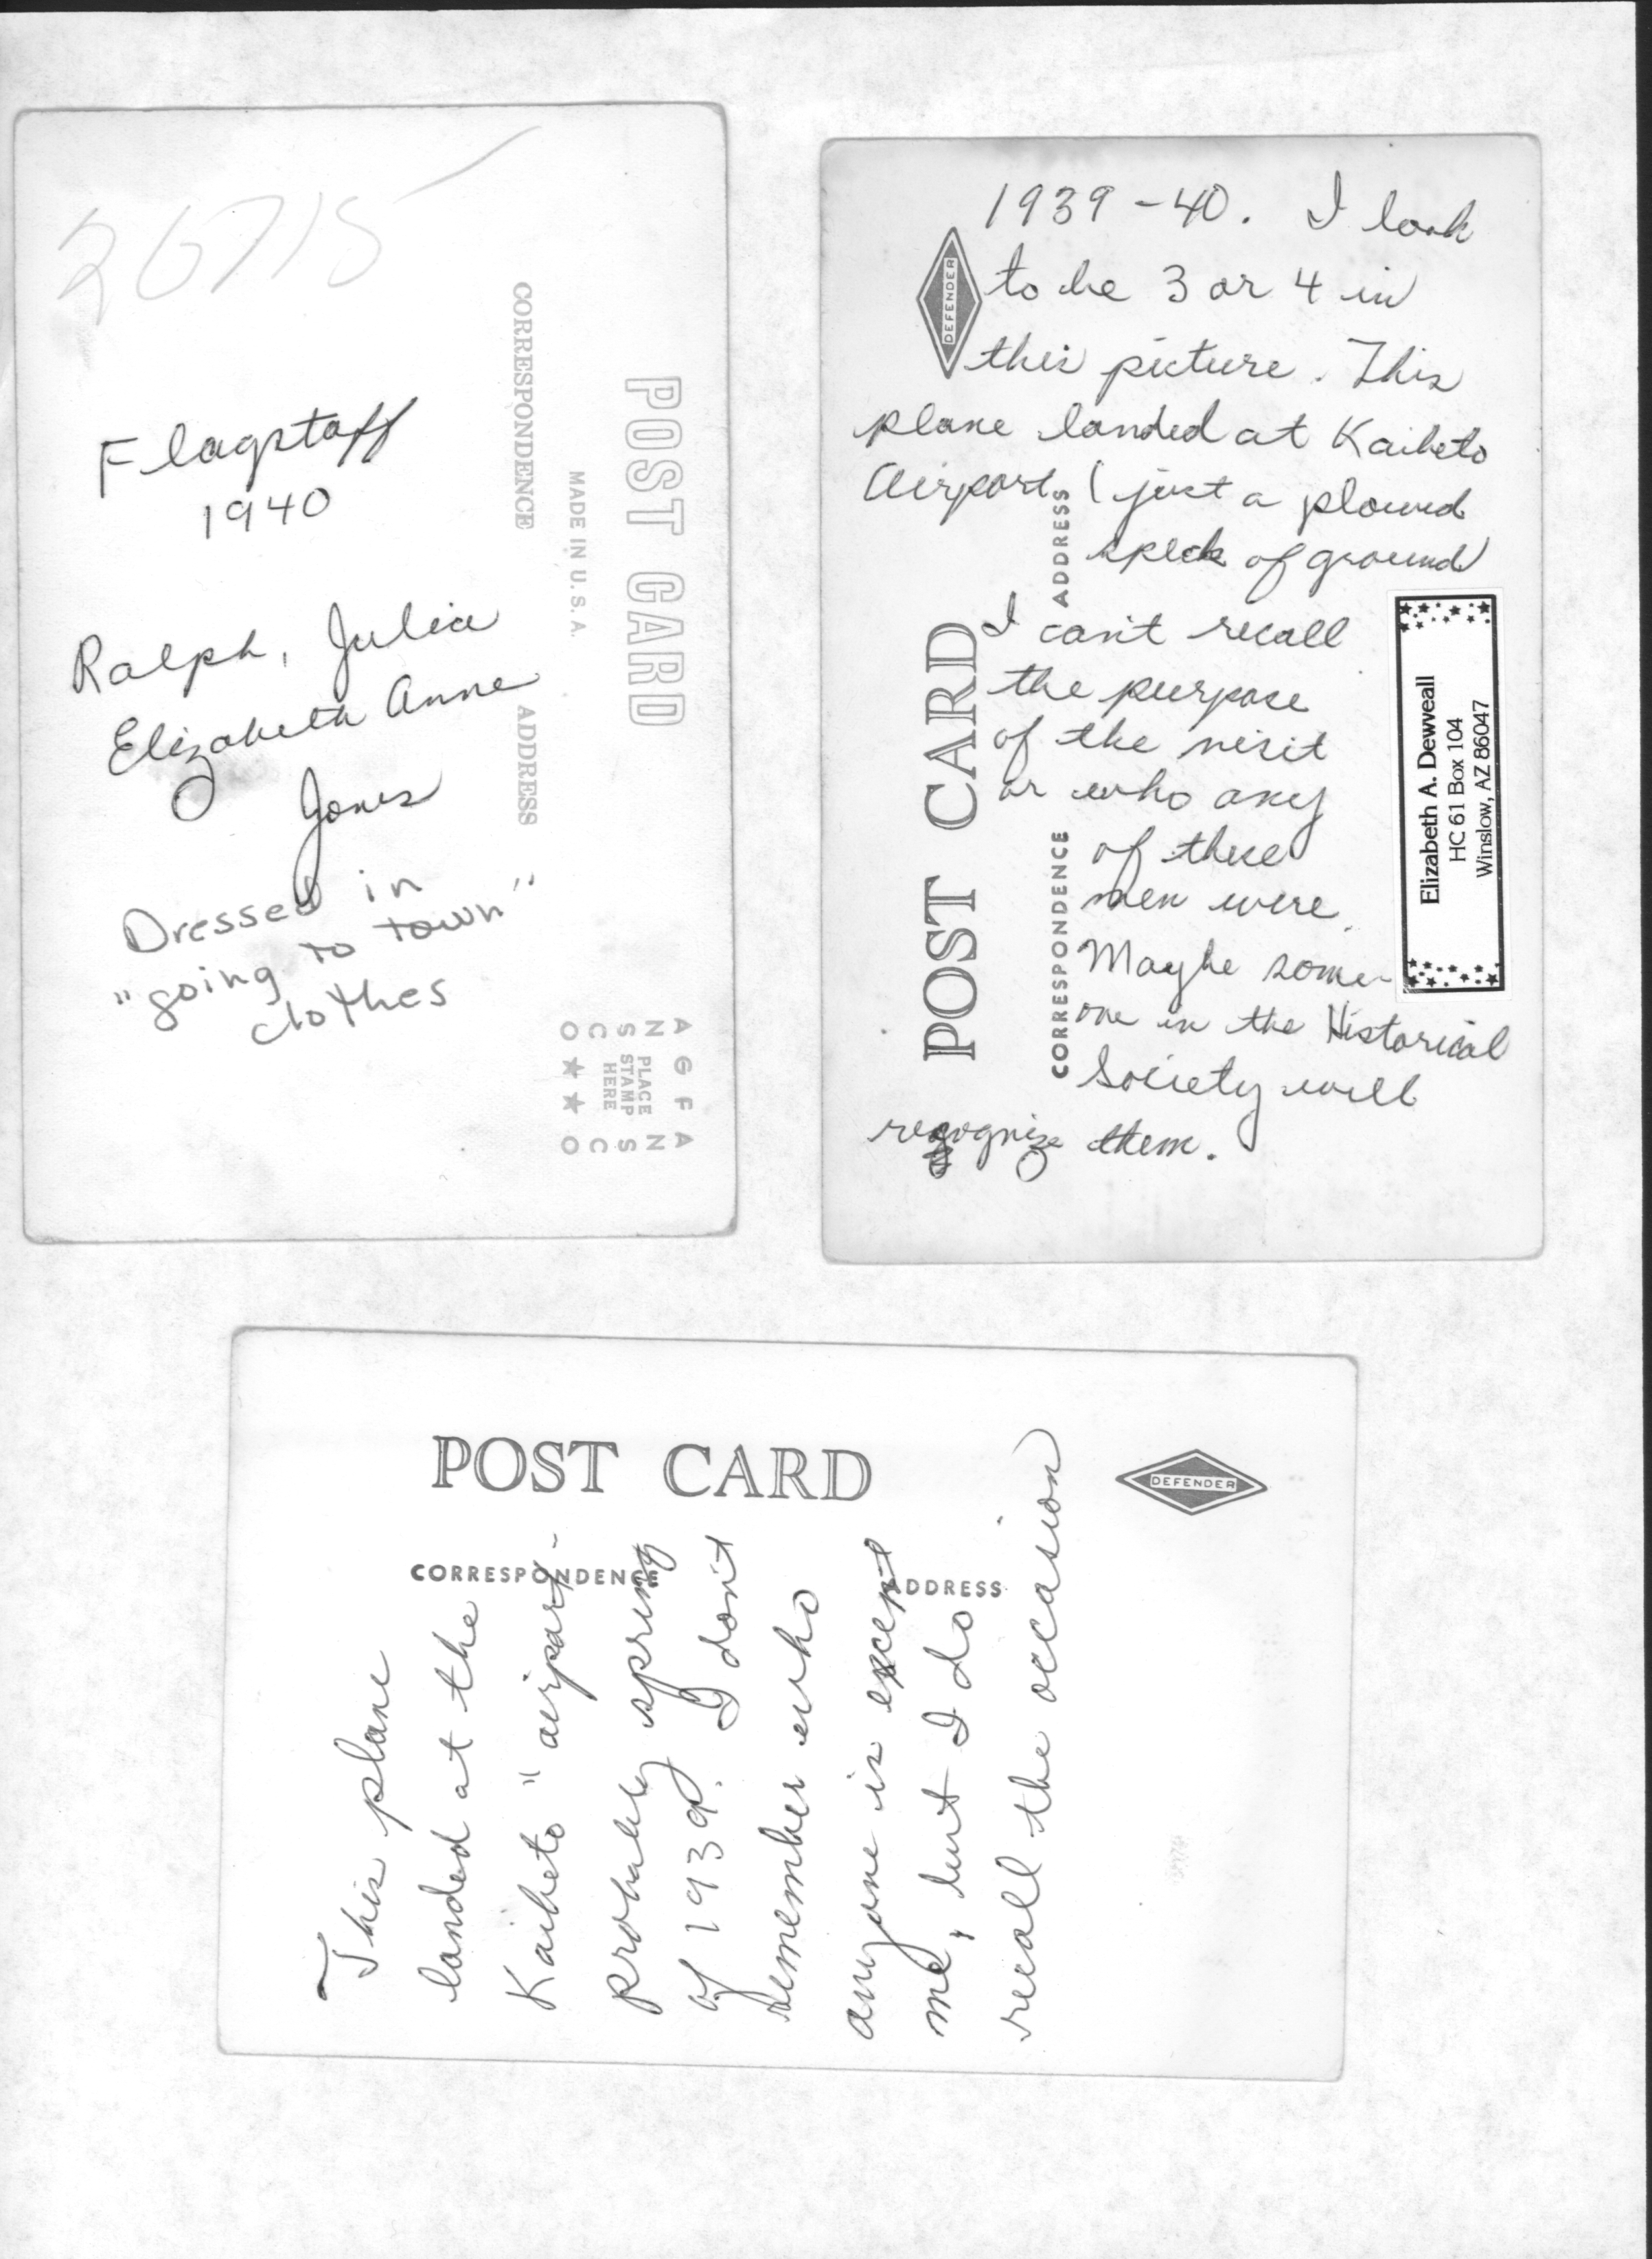 26715
Flagstaff
1940
Ralph, Julia
Elizabeth Anne
Jones
Dressed in
"going to town"
clothes
POST CARD
MADE IN U.S.A.
CORRESPONDENCE
ADDRESS
AGFA
ANSCO
PLACE
STAMP
HERE
AGFA
ANSCO
1939-40. I look
to be 3 or 4 in
this picture. This
plane landed at Kaibeto
Airport. (just a plowed
speck of ground
I can't recall
the purpose
of the visit
or who any
of these
men were.
Maybe some-
one in the Historical
Society will
recognize them.
DEFENDER
POST CARD
ADDRESS
CORRESPONDENCE
Elizabeth A. Dewweall
HC 61 Box 104
Winslow, AZ 86047
POST CARD
CORRESPONDENCE
ADDRESS
DEFENDER
This plane
landed at the
Kaibeto "airport-
probably spring
of 1939. I don't
remember who
anyone is except
me, but I do
recall the occasion